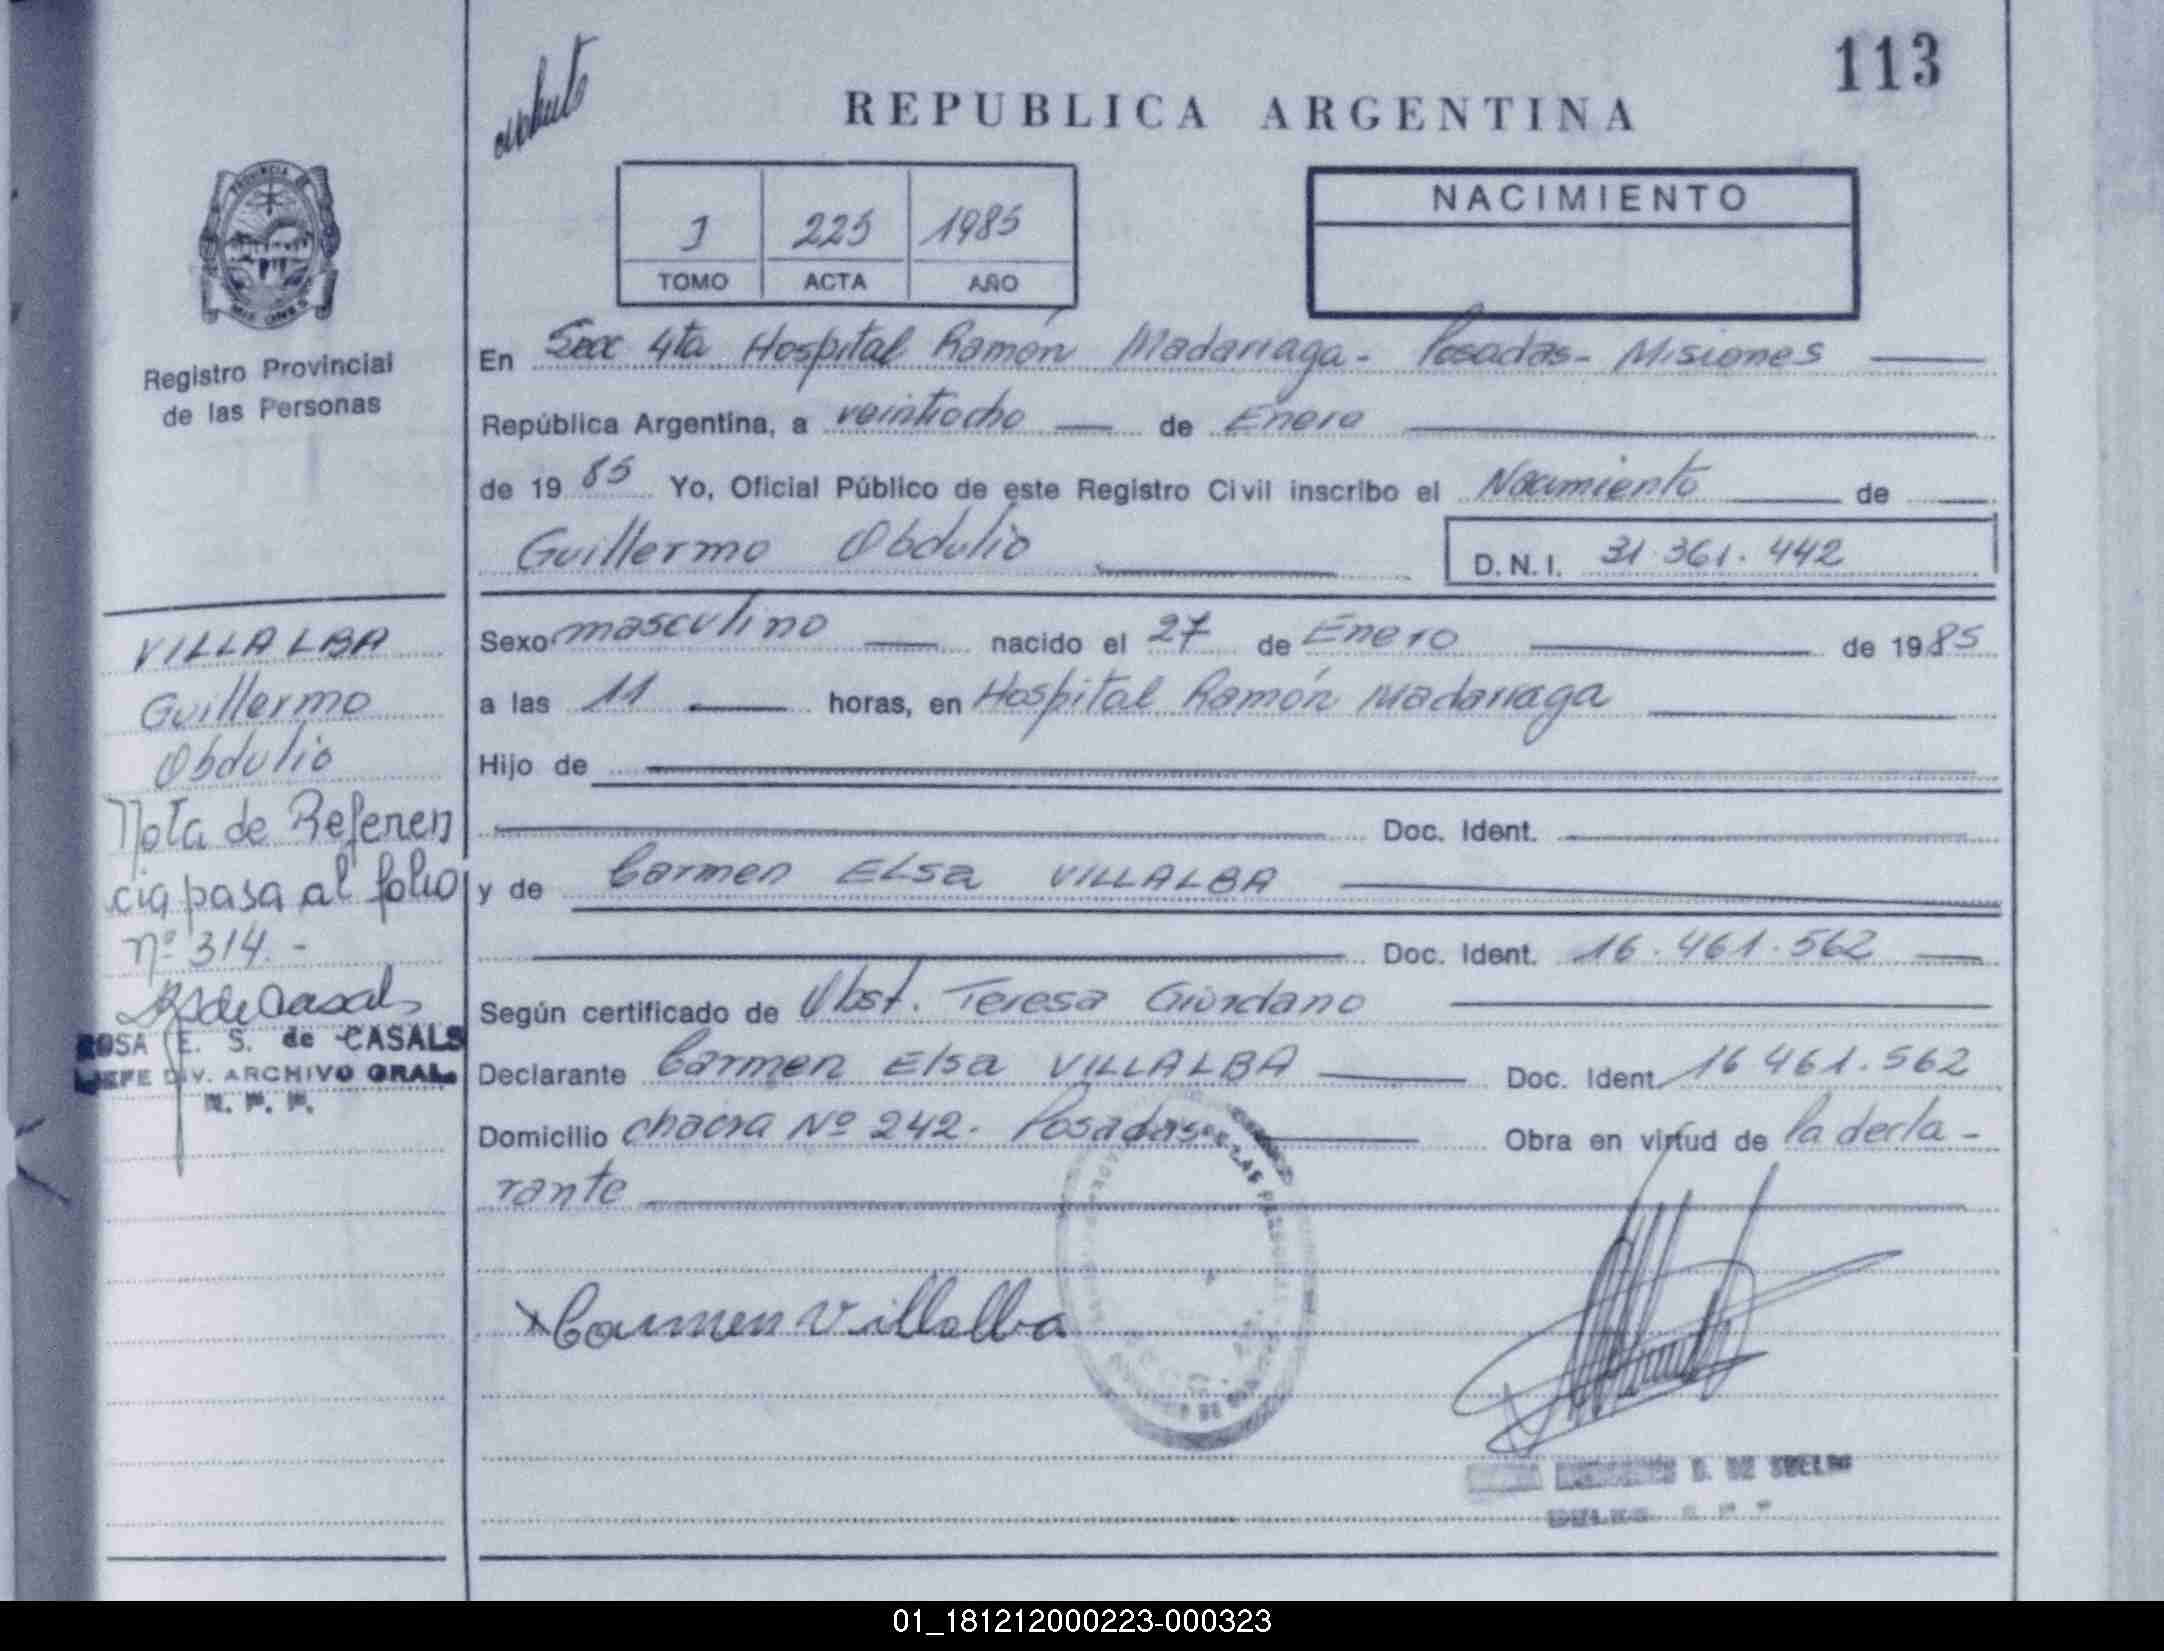 113
REPUBLICA ARGENTINA
NACIMIENTO
I 225 1985
TOMO ACTA AÑO
Registro Provincial
de las Personas
En Secc 4ta Hospital Ramón Madariaga - Posadas - Misiones
República Argentina, a veintiocho de Enero
de 1985 Yo, Oficial Público de este Registro Civil inscribo el Nacimiento de
Guillermo Obdulio D.N.I. 31.361.442
Sexo masculino nacido el 27 de Enero de 1985
a las 11 horas, en Hospital Ramón Madariaga
Hijo de
Doc. Ident.
y de Carmen Elsa VILLALBA
Doc. Ident. 16.461.562
Según certificado de Obst. Teresa Giordano
Declarante Carmen Elsa VILLALBA Doc. Ident. 16 461.562
Domicilio chacra Nº 242. Posadas Obra en virtud de la decla-
rante
x Carmen Villalba
VILLALBA
Guillermo
Obdulio
Nota de Referen
cia pasa al folio
nº 314.-
ROSA E. S. de CASALS
JEFE DIV. ARCHIVO GRAL.
R. P. P.
01_181212000223-000323